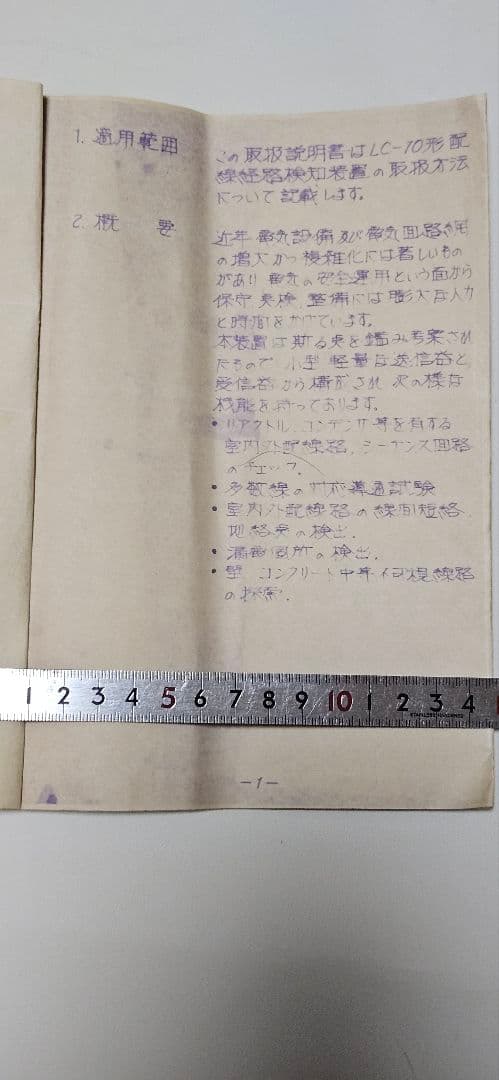 1. 適用範囲
この取扱説明書はLC-10形配
線経路検知装置の取扱方法
について記載します。
2. 概 要
近年電気設備及び電気回路網
の増大かつ複雑化には著しいもの
があり電気の安全運用という面から
保守点検、整備には膨大な人力
と時間をかけています。
本装置は斯る点を鑑み考案され
たもので 小型軽量な送信器と
受信器から構成され 次の様な
機能を持っております。
・リアクトル、コンデンサ等を有する
室内外配線路、シーケンス回路
のチェック.
・多数線の対応導通試験
・室内外配線路の線間短絡、
地絡点の検出.
・漏電個所の検出.
・壁 コンクリート中等不可視線路
の探索.
1 2 3 4 5 6 7 8 9 10 1 2 3 4
STAINLESS HARDENED
-1-